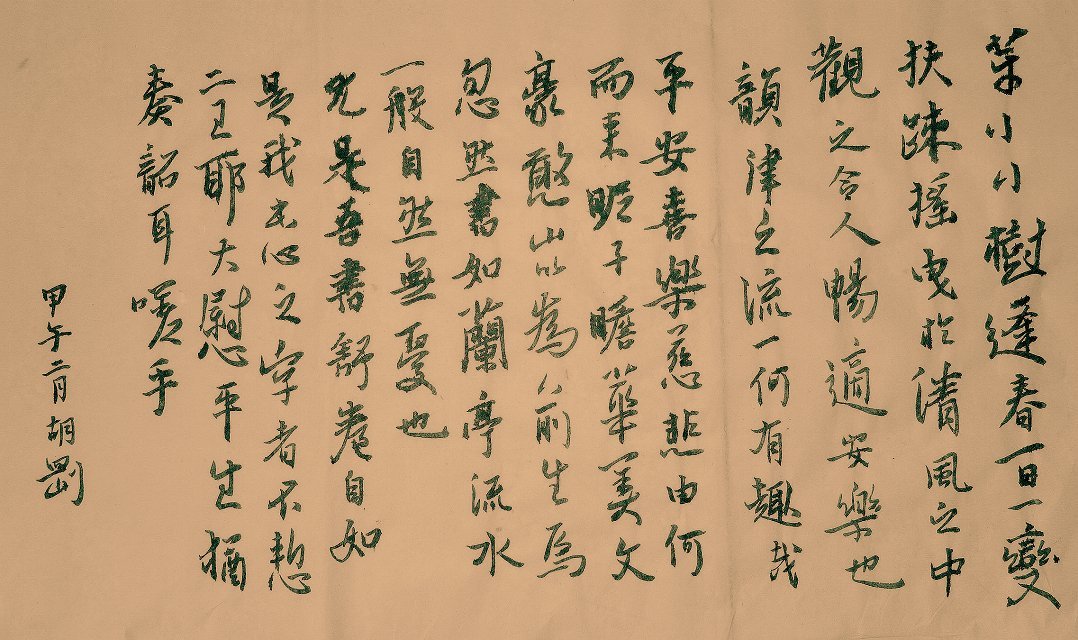 葉小小樹逢春一日一變
扶疎搖曳於清風之中
觀之令人暢適安樂也
韻律之流一何有趣哉
平安喜樂慈悲由何
而来 子瞻華美文
豪憨山以為前生焉
忽然書如蘭亭流水
一般自然無憂也
是吾書舒卷自如
是我出心之字者不
二王耶大慰平生猶
奏韶耳嘆乎
甲午二月胡